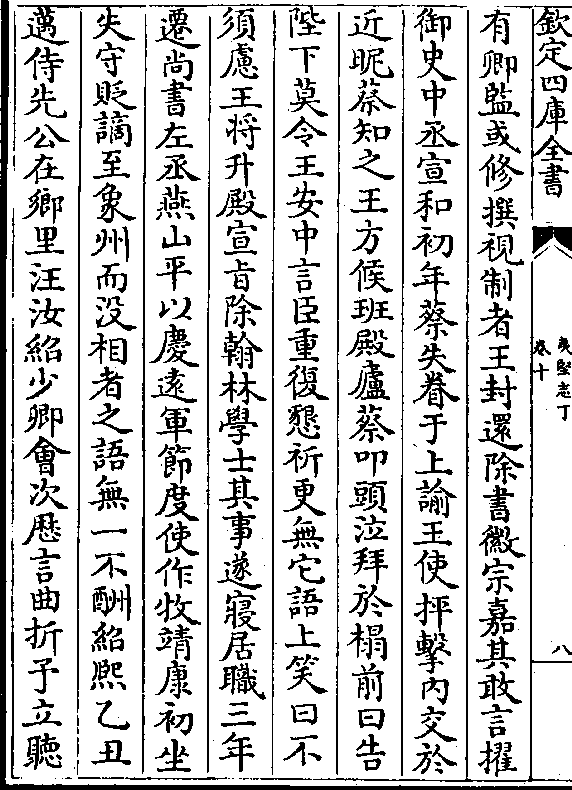 欽定四庫全書
夷堅志丁
卷十
八
有卿監或修撰視制者王封還除書徽宗嘉其敢言擢
御史中丞宣和初年蔡失眷于上諭王使抨擊内交於
近昵蔡知之王方候班殿廬蔡叩頭泣拜於榻前曰告
陛下莫令王安中言臣重復懇祈更無它語上笑曰不
須慮王将升殿宣旨除翰林學士其事遂寢居職三年
遷尚書左丞燕山平以慶遠軍節度使作牧靖康初坐
失守貶謫至象州而没相者之語無一不酬紹熙乙丑
邁侍先公在鄉里汪汝紹少卿會次歴言曲折予立聽